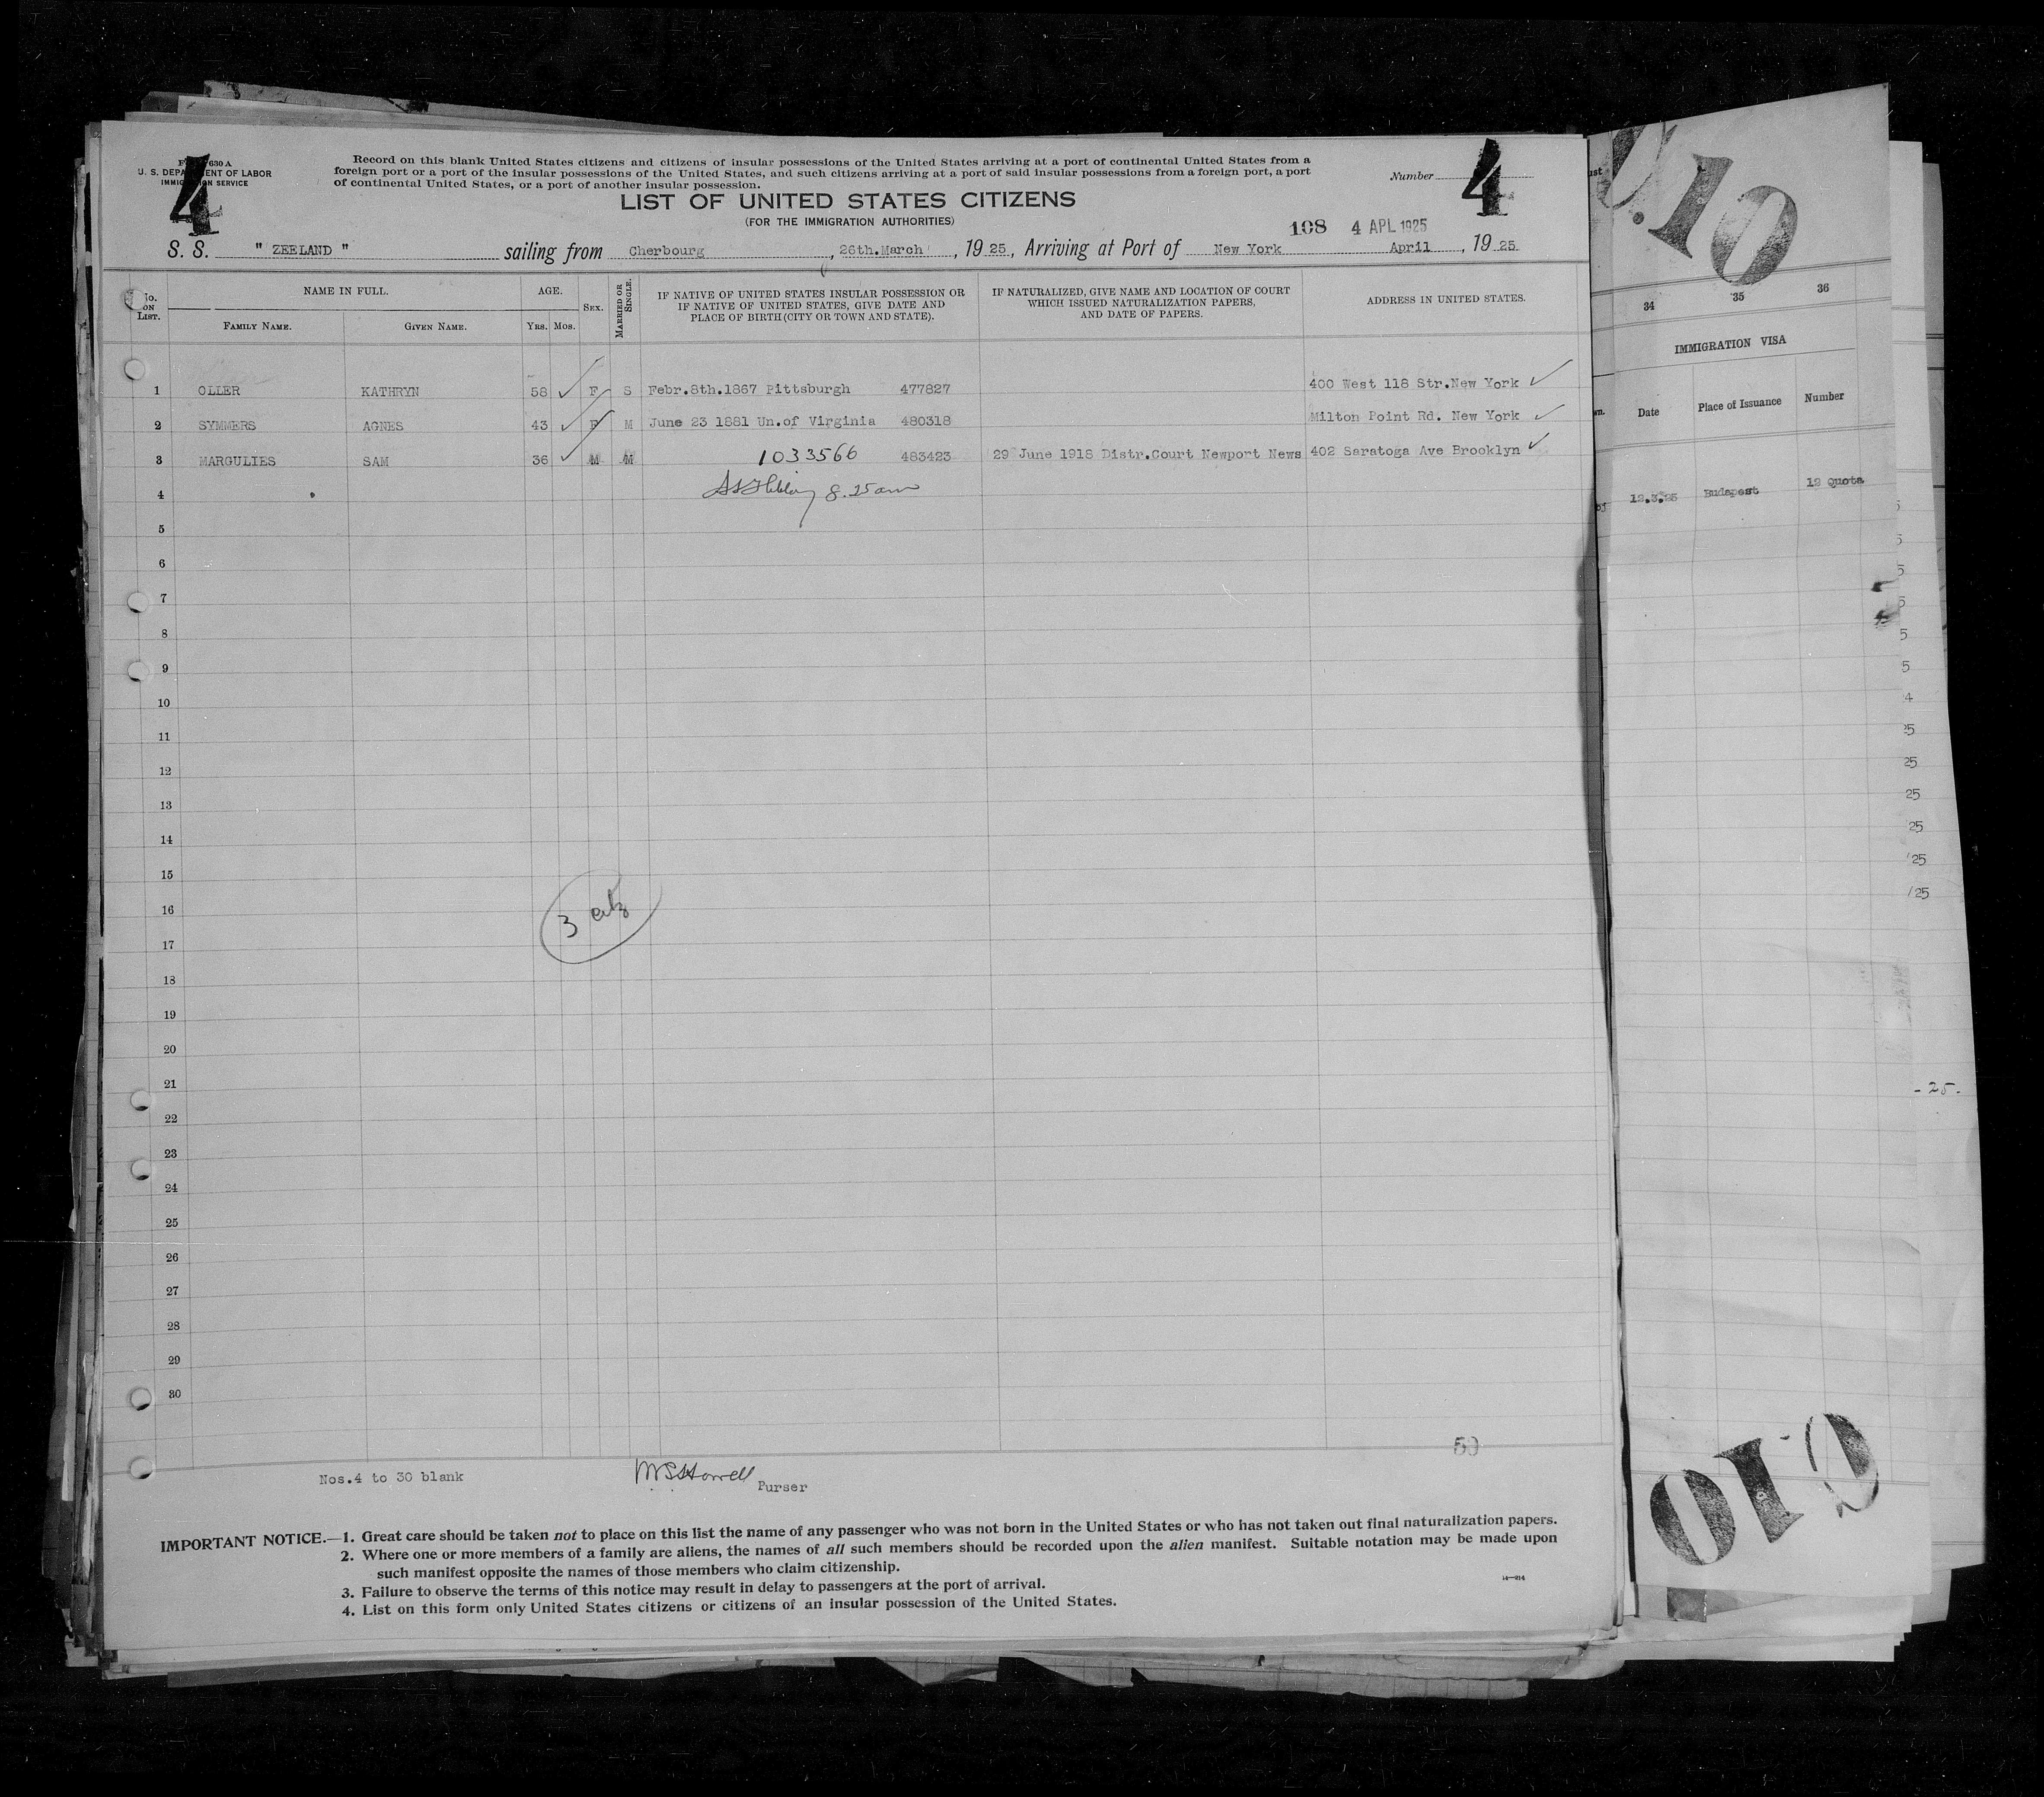 630 A
U. S. DEPARTMENT OF LABOR
IMMIGRATION SERVICE
4
Record on this blank United States citizens and citizens of insular possessions of the United States arriving at a port of continental United States from a
foreign port or a port of the insular possessions of the United States, and such citizens arriving at a port of said insular possessions from a foreign port, a port
of continental United States, or a port of another insular possession.
Number 4
LIST OF UNITED STATES CITIZENS
(FOR THE IMMIGRATION AUTHORITIES)
108 4 APL 1925
S. S. " ZEELAND " sailing from Cherbourg, 26th.March, 1925, Arriving at Port of New York April, 1925
No. ON LIST. NAME IN FULL. AGE. SEX. MARRIED OR SINGLE. IF NATIVE OF UNITED STATES INSULAR POSSESSION OR IF NATIVE OF UNITED STATES, GIVE DATE AND PLACE OF BIRTH (CITY OR TOWN AND STATE). IF NATURALIZED, GIVE NAME AND LOCATION OF COURT WHICH ISSUED NATURALIZATION PAPERS, AND DATE OF PAPERS. ADDRESS IN UNITED STATES.
FAMILY NAME. GIVEN NAME. YRS. MOS.
1 OLLER KATHRYN 58 F S Febr.8th.1867 Pittsburgh 477827 400 West 118 Str.New York
2 SYMMERS AGNES 43 F M June 23 1881 Un.of Virginia 480318 Milton Point Rd. New York
3 MARGULIES SAM 36 M M 1033566 483423 29 June 1918 Distr.Court Newport News 402 Saratoga Ave Brooklyn
4 8.25am
5
6
7
8
9
10
11
12
13
14
15
16 3 citz
17
18
19
20
21
22
23
24
25
26
27
28
29
30
50
Nos.4 to 30 blank
Purser
IMPORTANT NOTICE.—1. Great care should be taken not to place on this list the name of any passenger who was not born in the United States or who has not taken out final naturalization papers.
2. Where one or more members of a family are aliens, the names of all such members should be recorded upon the alien manifest. Suitable notation may be made upon
such manifest opposite the names of those members who claim citizenship.
3. Failure to observe the terms of this notice may result in delay to passengers at the port of arrival.
4. List on this form only United States citizens or citizens of an insular possession of the United States.
14—214
10
34 35 36
IMMIGRATION VISA
Date Place of Issuance Number
12.3.25 Budapest 12 Quota
5
5
5
5
5
5
4
25
25
25
25
/25
/25
- 25 -
010